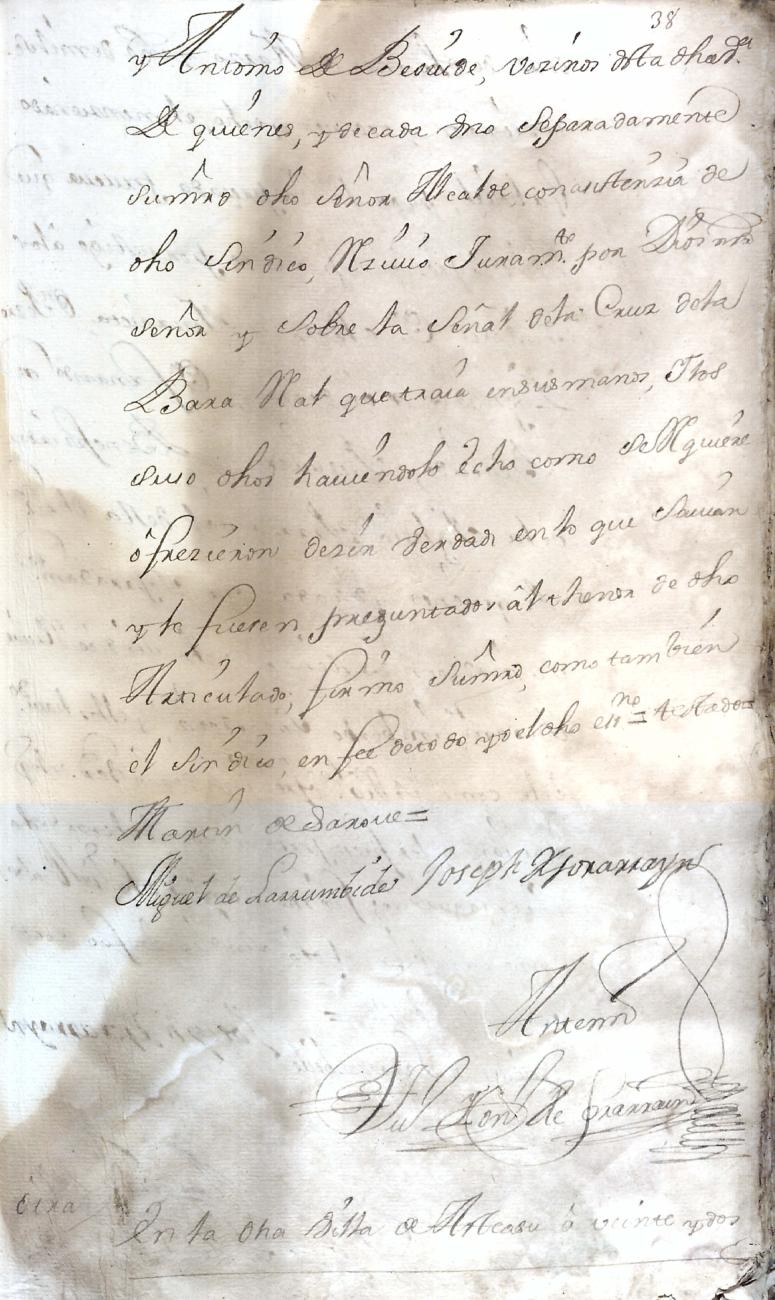 38
y Antonio de Beovide, vezinos desta dha va.
De quienes, y de cada vno separadamente
su mrd dho señor Alcalde, con asistenzia de
dho Sindico, Rziuió Juramto. por Dios nro
señor y sobre la señal de la Cruz de la
Bara Ral que traía en sus manos, I los
suso dhos hauiendolo echo como se Rquiere
ofrezieron dezir verdad en lo que sauian
y le fueren preguntados al thenor de dho
Articulado, firmo su mrd, como tambien
el Sindico, en fee de todo yo el dho essno = testado =
Martin de =
Miguel de Larrumbide Joseph
Ante mi
de
otra
En la dha Villa de Arteasu a veinte y dos